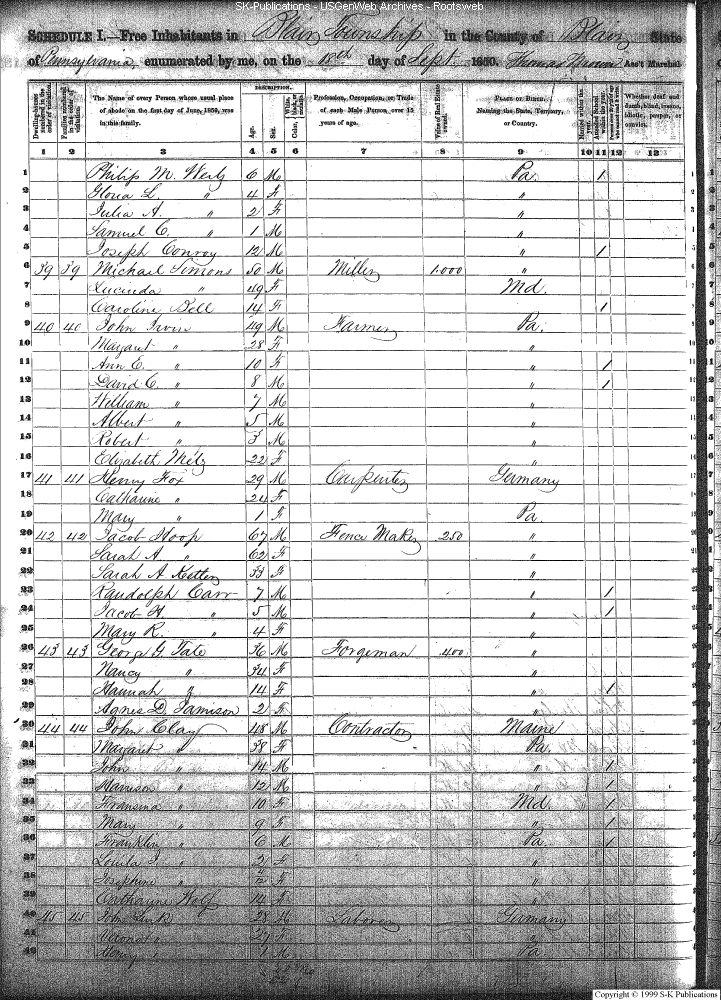 SK-Publications - USGenWeb Archives - Rootsweb
SCHEDULE I.—Free Inhabitants in Blair Township in the County of Blair State
of Pennsylvania, enumerated by me, on the 18th day of Sept. 1850. Thomas Ass't Marshal
DESCRIPTION.
Dwelling-houses numbered in the order of visitation. Families numbered in the order of visitation. The Name of every Person whose usual place of abode on the first day of June, 1850, was in this family. Age. Sex. Profession, Occupation, or Trade of each Male Person over 15 years of age. Value of Real Estate owned. PLACE OF BIRTH. Naming the State, Territory, or Country. Married within the year. Attended School within the year. Whether deaf and dumb, blind, insane, idiotic, pauper, or convict.
1 2 3 4 5 6 7 8 9 10 11 12 13
1 Philip M. Wertz 6 M Pa. 1
2 Gloria L. " 4 F "
3 Julia A. " 2 F "
4 Samuel C. " 1 M "
5 Joseph Conroy 12 M " 1
6 39 39 Michael Simons 50 M Miller 1.000 "
7 Lucinda " 49 F Md.
8 Caroline Bell 14 F 1
9 40 40 John Irvin 49 M Farmer Pa.
10 Margaret " 28 F "
11 Ann E. " 10 F " 1
12 David C. " 8 M " 1
13 William " 7 M "
14 Albert " 5 M "
15 Robert " 3 M "
16 Elizabeth Metz 22 F "
17 41 41 Henry Fox 29 M Carpenter Germany
18 Catharine " 24 F "
19 Mary " 1 F Pa.
20 42 42 Jacob Hoop 67 M Fence Maker 250 "
21 Sarah A " 62 F "
22 Sarah A 33 F "
23 Randolph Carr 7 M " 1
24 Jacob H. " 5 M " 1
25 Mary R. " 4 F "
26 43 43 George G. Tate 36 M Forgeman 400 "
27 Nancy " 34 F "
28 Hannah " 14 F " 1
29 Agnes D. Jamison 2 F "
30 44 44 John Clay 48 M Contractor Maine
31 Margaret " 38 F Pa.
32 John " 14 M " 1
33 Harrison " 12 M " 1
34 10 F Md. 1
35 Mary " 9 F " 1
36 Franklin " 6 M Pa. 1
37 Louisa J. " 2 F "
38 Josephine " F "
39 Catharine Wolf 14 F "
40 45 45 John 28 M Laborer Germany
41 27 F "
42 Henry " M Pa
Copyright © 1999 S-K Publications